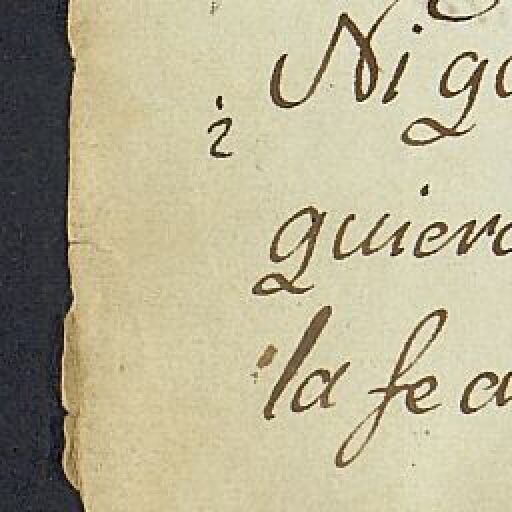 ¿ Ni go
quiero
la fe a